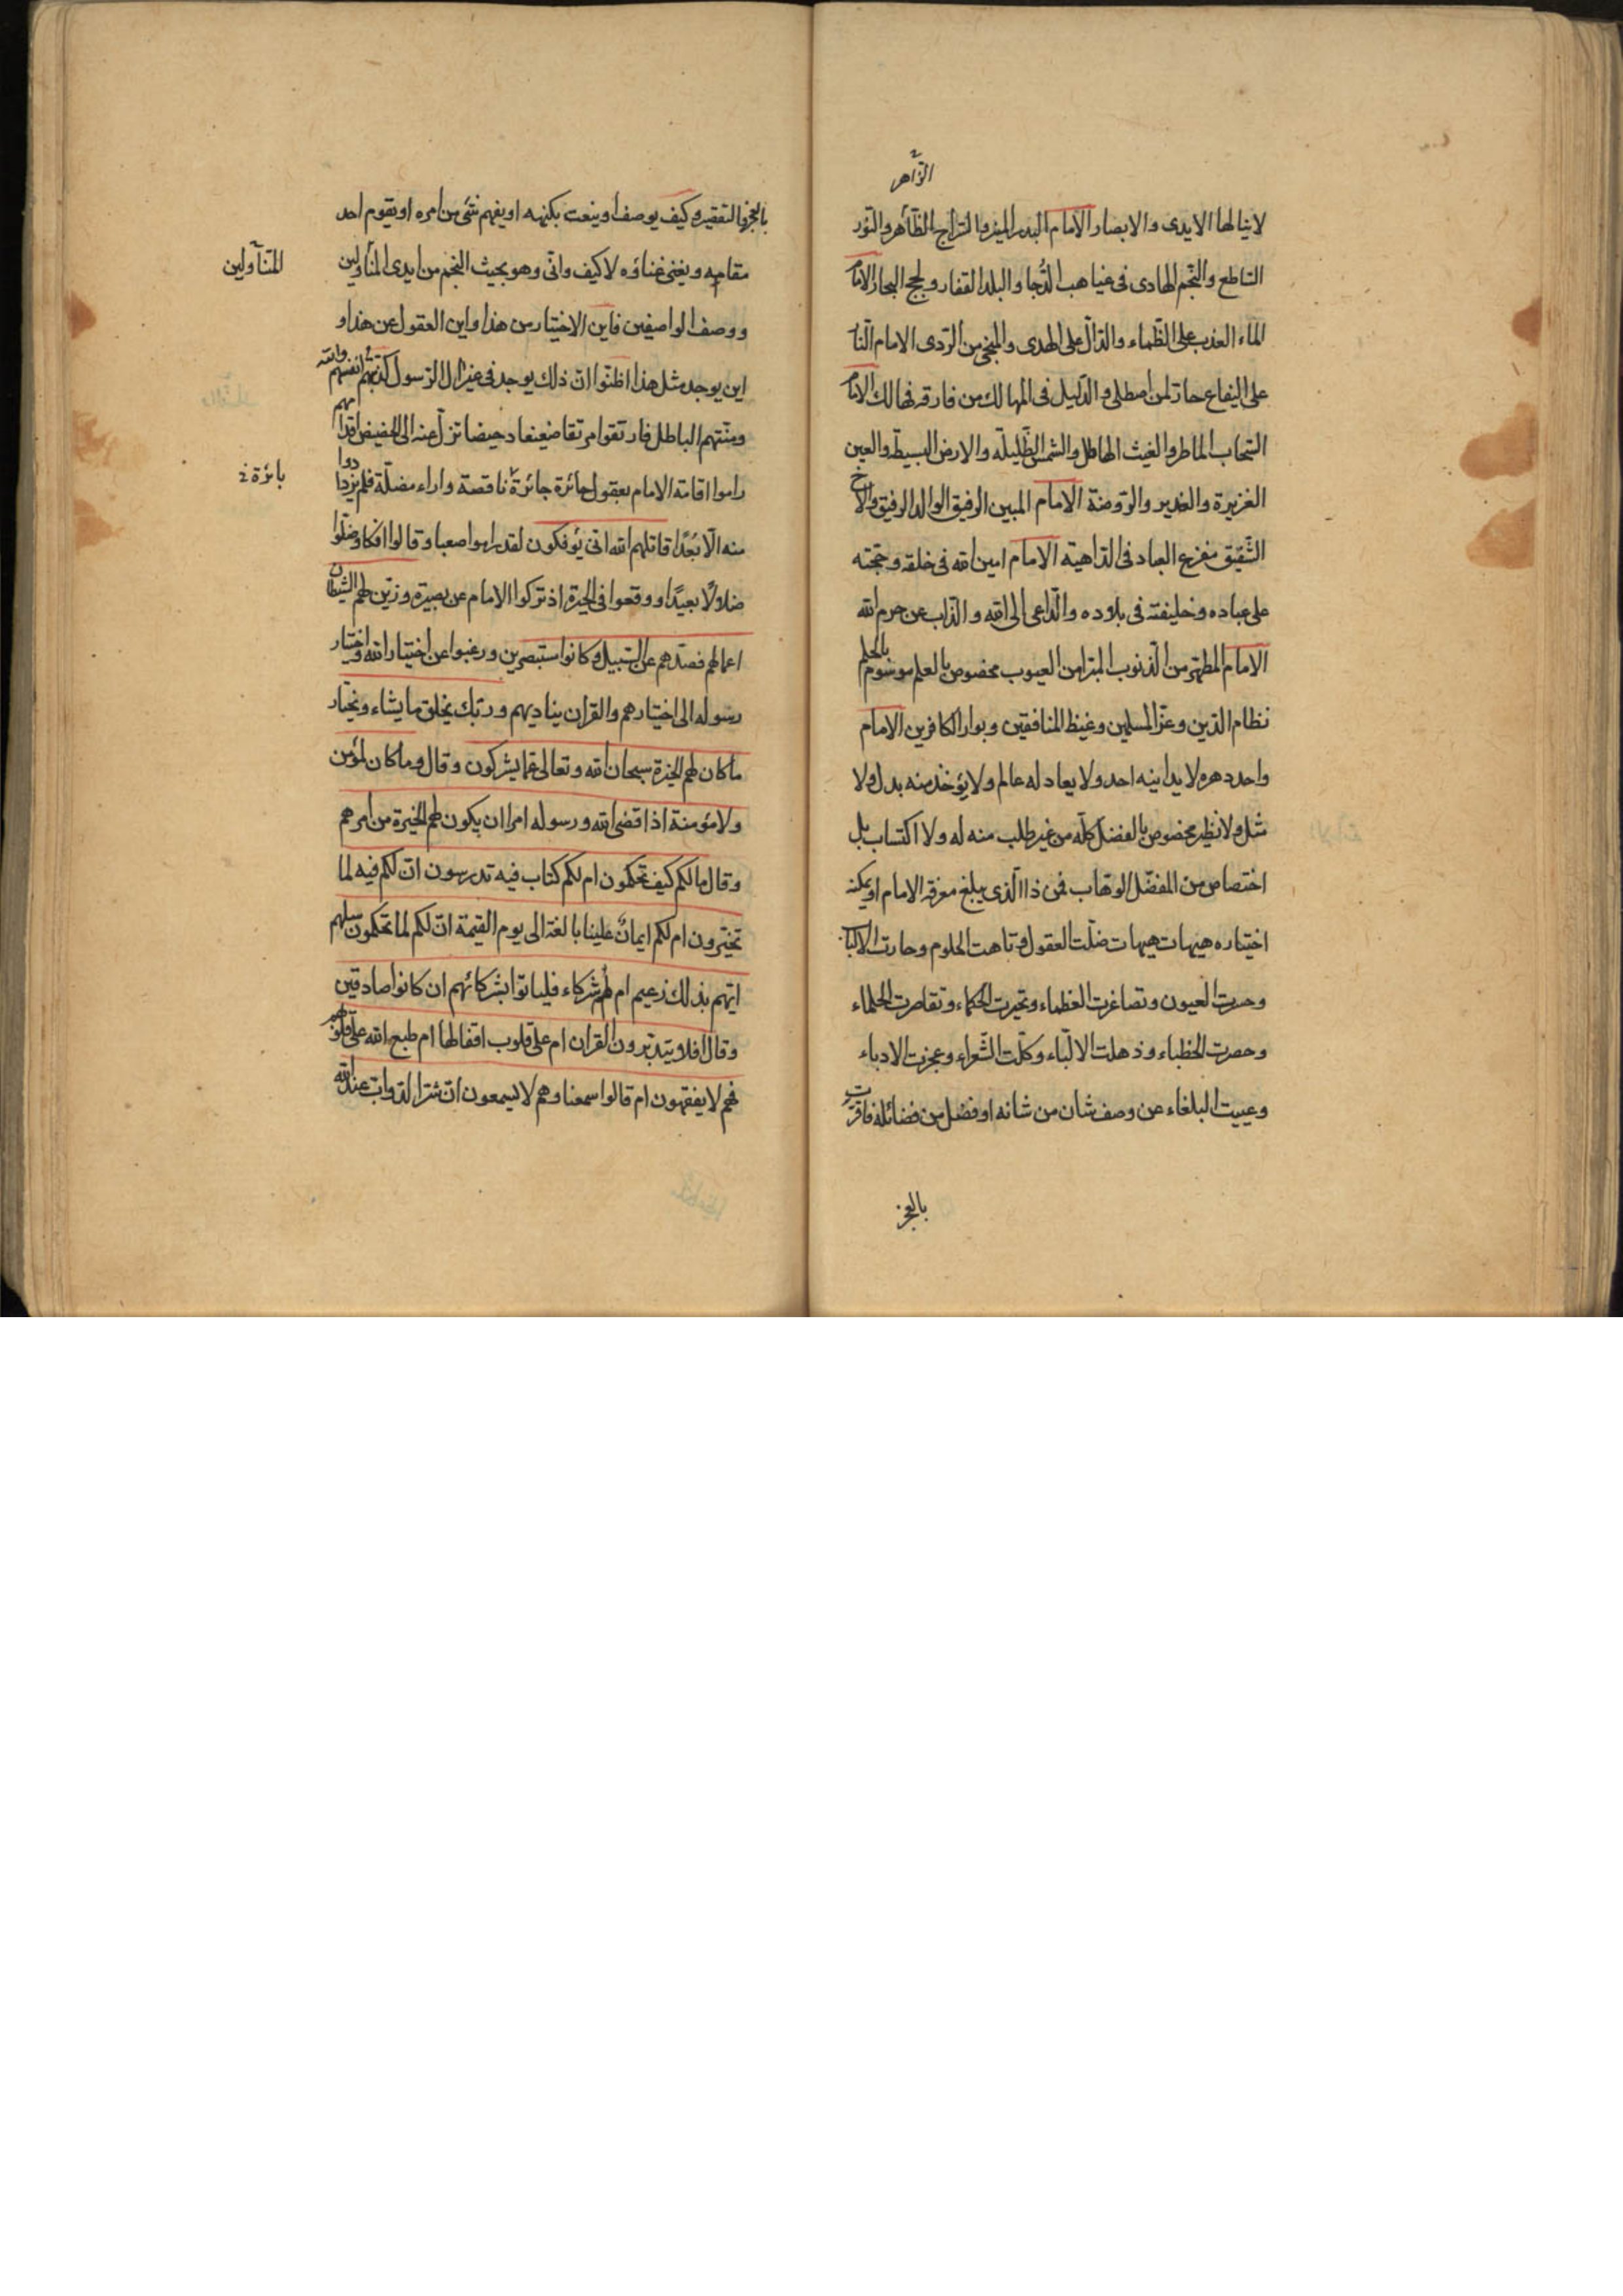 الزّاهر
لا ينالها الايدى والابصار الامام البدر المنير والسّراج الظّاهر والنّور
السّاطع والنّجم الهادى فى غياهب الدُّجا والبلد القفار ولجج البحار الامام
الماء العذب على الظّماء والدّالّ على الهدى والمنجى من الرّدى الامام النّار
على اليفاع حارّ لمن اصطلى و الدّليل فى المهالك من فارقه فهالك الامام
السّحاب الماطر والغيث الهاطل والشمس الظّليلة والارض البسيطة والعين
الغزيرة والغدير والرّوضة الامام المبين الرفيق الوالد الرفيق والاخ
الشّقيق مفزع العباد فى الدّاهية الامام امين الله فى خلقه وحجّته
على عباده وخليفته فى بلاده والدّاعى الى الله والذّاب عن حرم الله
الامام المطهّر من الذنوب المبرا من العيوب مخصوص بالعلم موسوم بالحلم
نظام الدّين وعزّ المسلمين وغيظ المنافقين وبوار الكافرين الامام
واحد دهره لا يدانيه احد ولا يعادله عالم ولا يؤخذ منه بدل ولا
مثل ولا نظير مخصوص بالفضل كلّه من غير طلب منه له ولا اكتساب بل
اختصاص من المفضّل الوهّاب فمن ذا الّذى يبلغ معرفة الامام او يمكنه
اختياره هيهات هيهات ضلّت العقول وتاهت الحلوم وحارت الالباب
وحسرت العيون وتصاغرت العظماء وتحيرت الحكماء وتقاصرت الحلماء
وحصرت الخطباء وذهلت الالبّاء وكلّت الشّعراء وعجزت الادباء
وعييت البلغاء عن وصف شان من شانه او فضل من فضائله فاقرّت
بالعجز
بالعجز والتقصير وكيف يوصف او ينعت بكنهه او يفهم شئ من امره او يقوم احد
مقامه ويغنى غناؤه لا كيف وانّى وهو بحيث النجم من ايدى المتأولين
المتناولين
ووصف الواصفين فاين الاختيار من هذا واين العقول عن هذا و
اين يوجد مثل هذا اظنّوا انّ ذلك يوجد فى غير ال الرّسول كذبتهم انفسهم والله
ومنّتهم الباطل فارتقوا مرتقا ضعبا دحيضا تزلّ عنه الى الحضيض اقدامهم
راموا اقامة الامام بعقول حائرة جائرة ناقصة واراء مضلّة فلم يزدادوا
بائرة خ
منه الّا بُعدًا قاتلهم الله انّى يؤفكون لقد راموا صعبا وقالوا افكا وضلّوا
ضلالًا بعيدًا ووقعوا فى الحيرة اذ تركوا الامام عن بصيرة وزيّن لهم الشيطان
اعمالهم فصدّهم عن السّبيل وكانوا مستبصرين ورغبوا عن اختيار الله واختيار
رسوله الى اختيارهم والقران يناديهم وربّك يخلق ما يشاء ويختار
ما كان لهم الخيرة سبحان الله وتعالى عمّا يشركون وقال وما كان لمؤمن
ولا مؤمنة اذا قضى الله ورسوله امرا ان يكون لهم الخيرة من امرهم
وقال ما لكم كيف تحكمون ام لكم كتاب فيه تدرسون انّ لكم فيه لما
تخيّرون ام لكم ايمانٌ علينا بالغة الى يوم القيمة انّ لكم لما تحكمون سلهم
ايّهم بذلك زعيم ام لهم شركاء فلياتوا بشركائهم ان كانوا صادقين
وقال افلا يتدبّرون القران ام على قلوب اقفالها ام طبع الله على قلوبهم
فهم لا يفقهون ام قالوا سمعنا وهم لا يسمعون انّ شرّ الدّوابّ عند الله